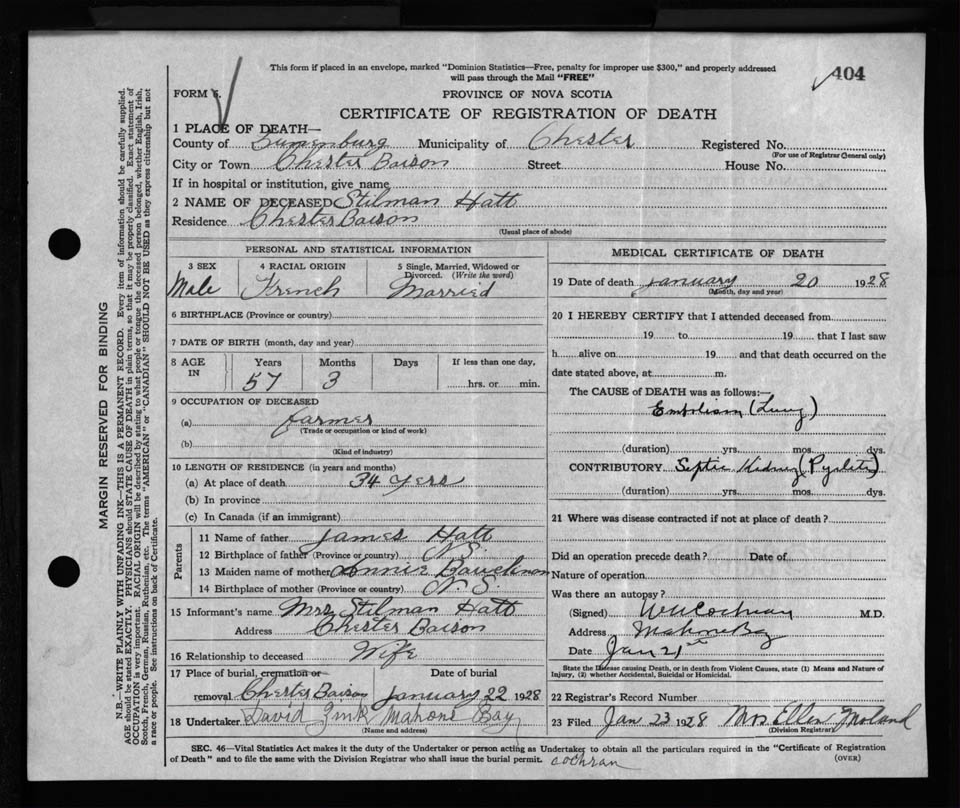 This form if placed in an envelope, marked "Dominion Statistics—Free, penalty for improper use $300," and properly addressed
will pass through the Mail "FREE"
404
FORM 6.
PROVINCE OF NOVA SCOTIA
CERTIFICATE OF REGISTRATION OF DEATH
1 PLACE OF DEATH—
County of Lunenburg Municipality of Chester Registered No.
(For use of Registrar General only)
City or Town Chester Basion Street House No.
If in hospital or institution, give name
2 NAME OF DECEASED Stilman Hatt
Residence Chester Basion
(Usual place of abode)
PERSONAL AND STATISTICAL INFORMATION
3 SEX 4 RACIAL ORIGIN 5 Single, Married, Widowed or
Divorced. (Write the word)
Male French Married
6 BIRTHPLACE (Province or country)
7 DATE OF BIRTH (month, day and year)
8 AGE Years Months Days If less than one day,
IN 57 3 hrs. or min.
9 OCCUPATION OF DECEASED
(a) farmer
(Trade or occupation or kind of work)
(b)
(Kind of industry)
10 LENGTH OF RESIDENCE (in years and months)
(a) At place of death 34 yers
(b) In province
(c) In Canada (if an immigrant)
Parents
11 Name of father James Hatt
12 Birthplace of father (Province or country) N.S.
13 Maiden name of mother Annie
14 Birthplace of mother (Province or country) N.S.
15 Informant's name Mrs Stilman Hatt
Address Chester Basion
16 Relationship to deceased Wife
17 Place of burial, cremation or Date of burial
removal Chester Basion January 22 1928
18 Undertaker David Zink Mahone Bay
(Name and address)
MEDICAL CERTIFICATE OF DEATH
19 Date of death January 20 1928
(Month, day and year)
20 I HEREBY CERTIFY that I attended deceased from
19 to 19 that I last saw
h alive on 19 and that death occurred on the
date stated above, at m.
The CAUSE OF DEATH was as follows:—
Embolism (Lung)
(duration) yrs. mos. dys.
CONTRIBUTORY Septic Kidney (Pyelitis)
(duration) yrs. mos. dys.
21 Where was disease contracted if not at place of death?
Did an operation precede death? Date of
Nature of operation
Was there an autopsy?
(Signed) W H Cochran M.D.
Address Mahone Bay
Date Jan 21st
State the Disease causing Death, or in death from Violent Causes, state (1) Means and Nature of
Injury, (2) whether Accidental, Suicidal or Homicidal.
22 Registrar's Record Number
23 Filed Jan 23 1928 Mrs Ellen
(Division Registrar)
SEC. 46—Vital Statistics Act makes it the duty of the Undertaker or person acting as Undertaker to obtain all the particulars required in the "Certificate of Registration
of Death" and to file the same with the Division Registrar who shall issue the burial permit. cochran (OVER)
MARGIN RESERVED FOR BINDING
N.B.—WRITE PLAINLY WITH UNFADING INK—THIS IS A PERMANENT RECORD. Every item of information should be carefully supplied.
AGE should be stated EXACTLY. PHYSICIANS should STATE CAUSE OF DEATH in plain terms, so that it may be properly classified. Exact statement of
OCCUPATION is very important. RACIAL ORIGIN will be described by stating to what people or tongue the deceased person belonged, whether English, Irish,
Scotch, French, German, Russian, Ruthenian, etc. The terms "AMERICAN" or "CANADIAN" SHOULD NOT BE USED as they express citizenship but not
a race or people. See instructions on back of Certificate.